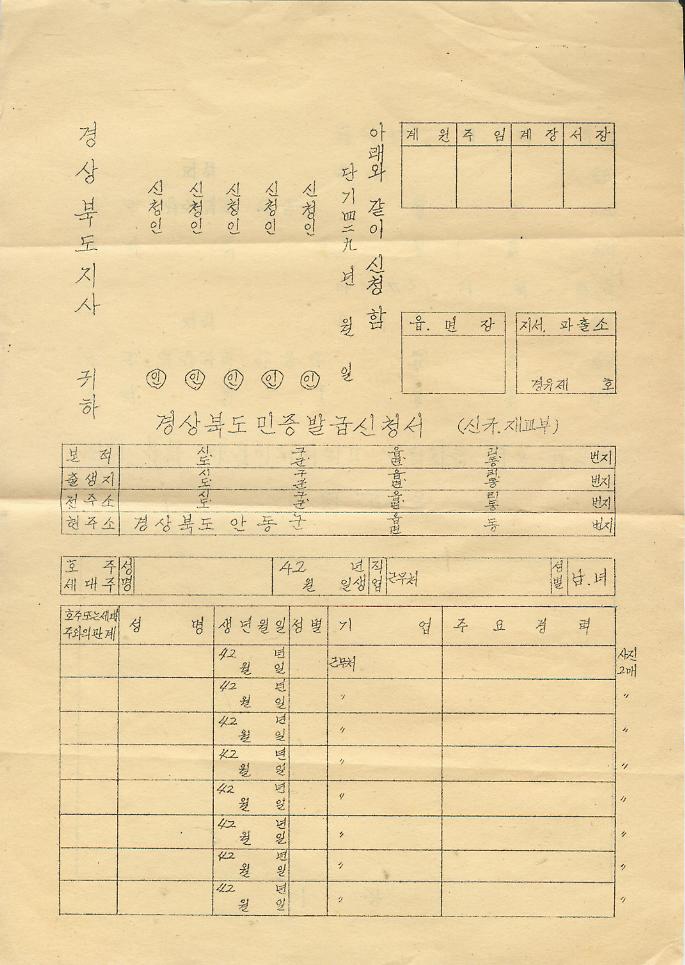 계 원 주 임 계 장 서 장
아래와 같이 신청함
단기四二九 년 월 일
신청인 ㊞
신청인 ㊞
신청인 ㊞
신청인 ㊞
신청인 ㊞
경상북도지사 귀하
읍. 면 장
지서. 파출소
경유제 호
경상북도민증발급신청서 (신규.재교부)
본 적 시도 구군 읍면 리동 번지
출생지 시도 구군 읍면 리동 번지
전주소 시도 구군 읍면 리동 번지
현주소 경상북도안동군 읍면 동 번지
호 주 세대주 성명 42 년 월 일생 직업 근무처 성별 남.녀
호주또는세대주와의관계 성 명 생년월일 성별 기 업 주 요 경 력
42 년 월 일 근무처 사진2매
42 년 월 일 〃 〃
42 년 월 일 〃 〃
42 년 월 일 〃 〃
42 년 월 일 〃 〃
42 년 월 일 〃 〃
42 년 월 일 〃 〃
42 년 월 일 〃 〃